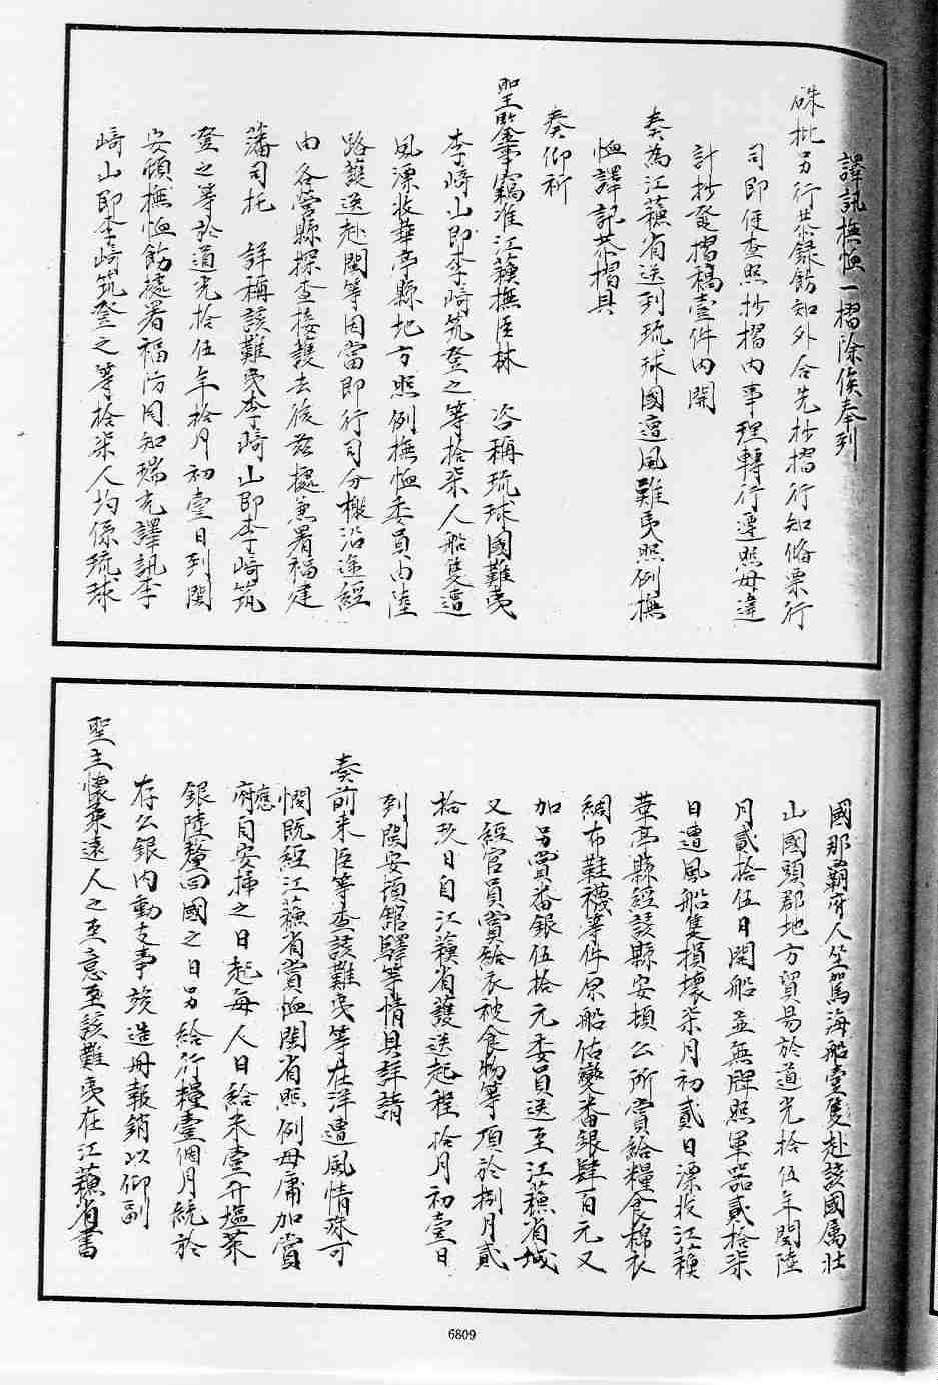 譯訊撫恤一摺除俟奉到
硃批另行恭錄飭知外合先抄摺行知備票行
司即便查照抄摺內事理轉行遵照毋違
計抄發摺稿壹件內開
奏為江蘇省送到琉球國遭風難夷照例撫
恤譯訊恭摺具
奏仰祈
聖鑒事竊准江蘇撫臣林 咨稱琉球國難夷
李崎山即李崎筑登之等拾柒人船隻遭
風漂收華亭縣地方照例撫恤委員由陸
路護送赴閩等因當即行司分檄沿途經
由各營縣探查接護去後茲據兼署福建
藩司托 詳稱該難夷李崎山即李崎筑
登之等於道光拾伍年拾月初壹日到閩
安頓撫恤飭據署福防同知瑞光譯訊李
崎山即李崎筑登之等拾柒人均係琉球
國那霸府人坐駕海船壹隻赴該國属壯
山國頭郡地方貿易於道光拾伍年閏陸
月貳拾伍日開船並無牌照軍器貳拾柒
日遭風船隻損壞柒月初貳日漂收江蘇
華亭縣經該縣安頓公所賞給糧食棉衣
綢布鞋襪等件原船估變番銀肆百元又
加另賞番銀伍拾元委員送至江蘇省城
又經官員賞給衣被食物等項於捌月貳
拾玖日自江蘇省護送起程拾月初壹日
到閩安頓館驛等情具詳請
奏前來臣等查該難夷等在洋遭風情殊可
憫既經江蘇省賞恤閩省照例毋庸加賞
應府自安揷之日起每人日給米壹升塩菜
銀陸釐回國之日另給行糧壹個月統於
存公銀內動支事竣造冊報銷以仰副
聖主懷柔遠人之至意至該難夷在江蘇省書
6809